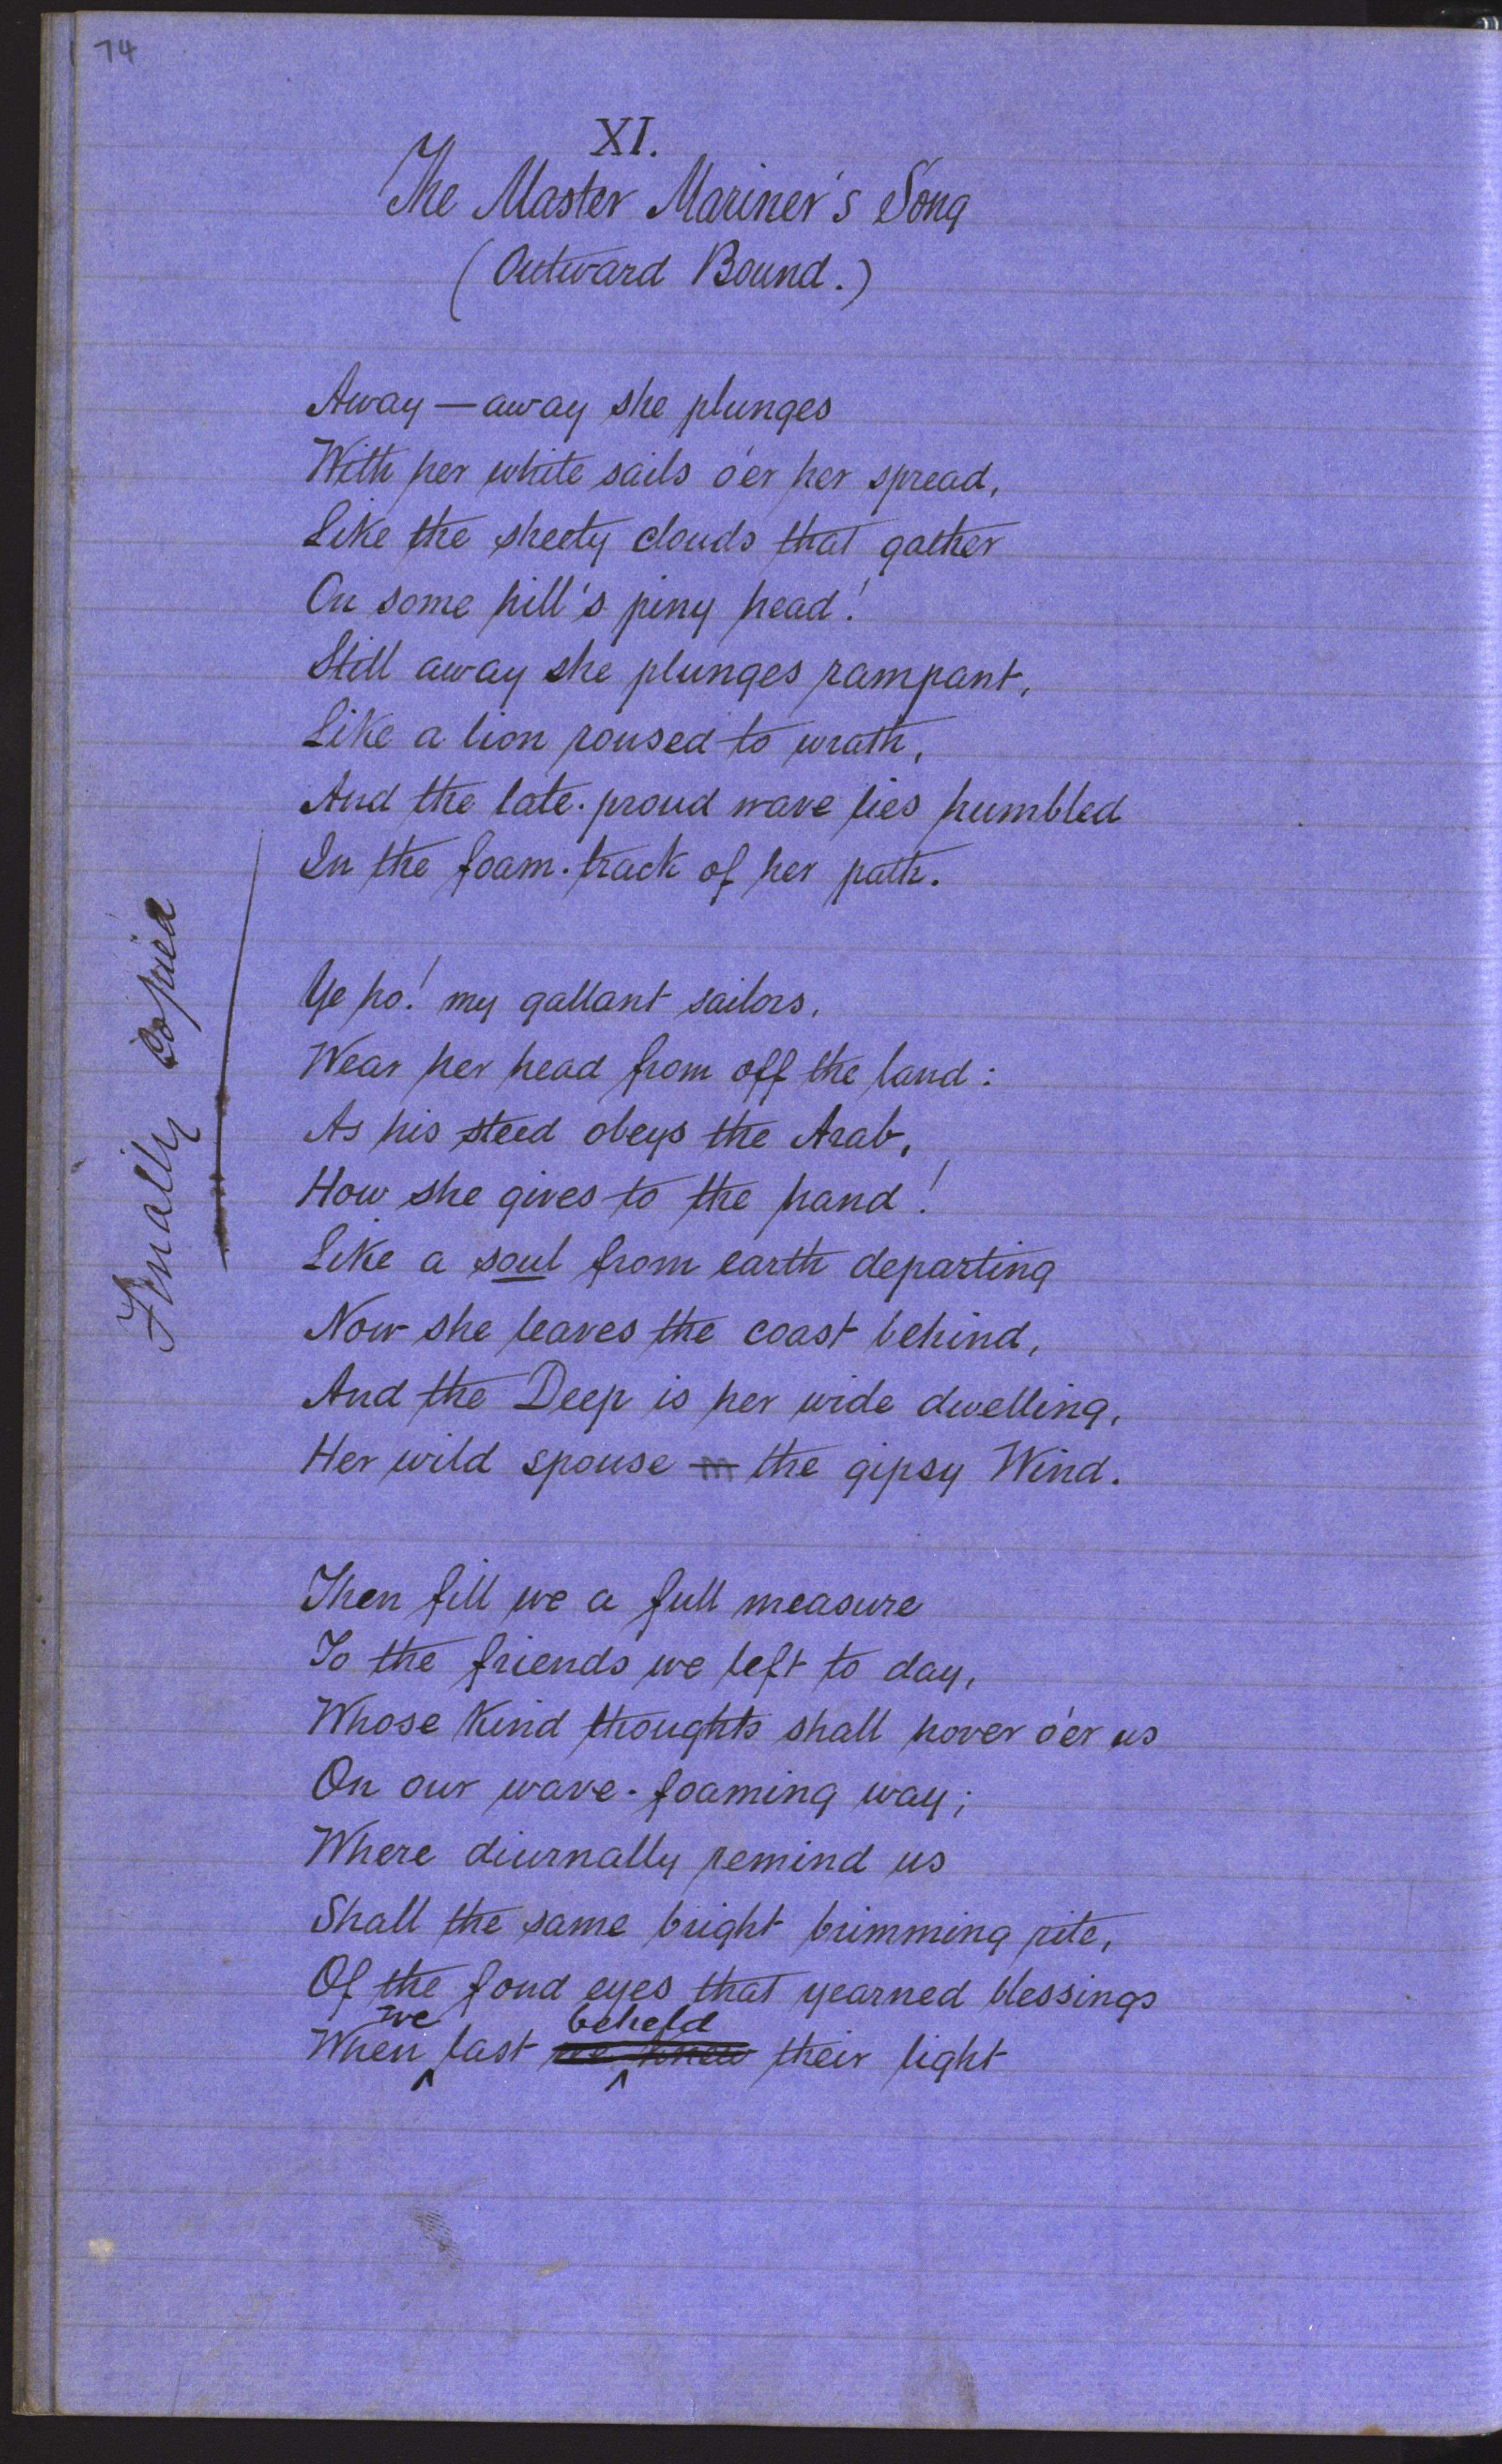 74
XI.
The Master Mariner's Song
(Outward Bound.)
Away — away she plunges
With her white sails o'er her spread,
Like the sheety clouds that gather
On some hill's piny head!
Still away she plunges rampant,
Like a lion roused to wrath,
And the late-proud wave lies humbled
In the foam-track of her path.
Ye ho! my gallant sailors,
Wear her head from off the land:
As his steed obeys the Arab,
How she gives to the hand!
Like a soul from earth departing
Now she leaves the coast behind,
And the Deep is her wide dwelling,
Her wild spouse — the gipsy Wind.
Then fill we a full measure
To the friends we left to day,
Whose kind thoughts shall hover o'er us
On our wave-foaming way;
Where diurnally remind us
Shall the same bright brimming rite,
Of the fond eyes that yearned blessings
we beheld
When last we knew their light
Finally copied